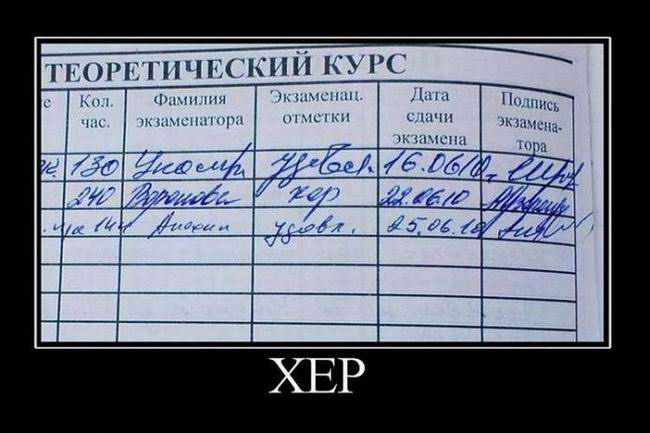 ТЕОРЕТИЧЕСКИЙ КУРС
Кол. час. Фамилия экзаменатора Экзаменац. отметки Дата сдачи экзамена Подпись экзамена-тора
130 удовл. 16.06.10
240 Воронова хор 22.06.10
144 Анохин удовл. 25.06.10
ХЕР